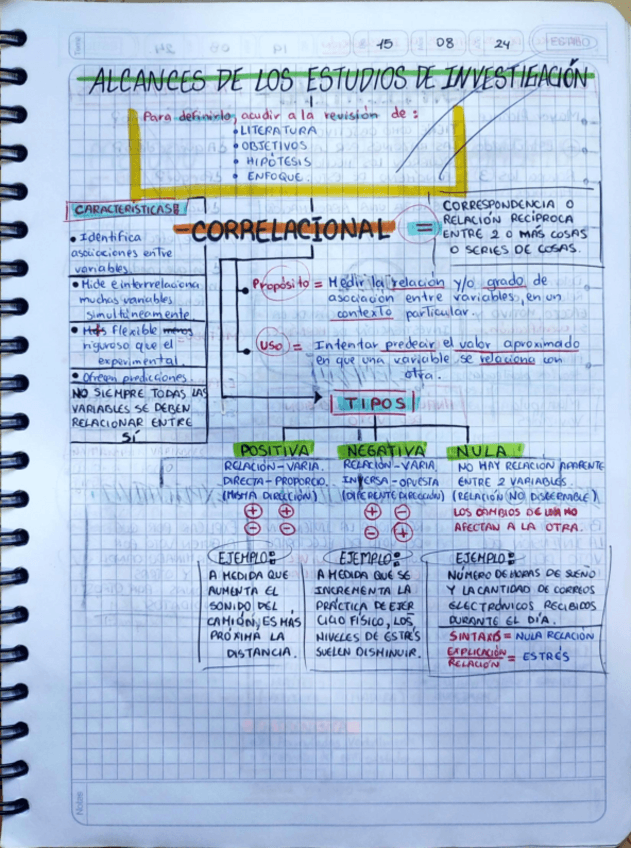 15 08 24
ALCANCES DE LOS ESTUDIOS DE INVESTIGACIÓN
Para definirlo, acudir a la revisión de:
• LITERATURA
• OBJETIVOS
• HIPÓTESIS
• ENFOQUE.
CARACTERÍSTICAS:
• Identifica
asociaciones entre
variables.
• Mide e interrelaciona
muchas variables
simultáneamente.
• Más flexible menos
riguroso que el
experimental.
• Ofrecen predicciones.
NO SIEMPRE TODAS LAS
VARIABLES SE DEBEN
RELACIONAR ENTRE
SÍ
CORRELACIONAL =
CORRESPONDENCIA O
RELACIÓN RECÍPROCA
ENTRE 2 O MÁS COSAS
O SERIES DE COSAS.
Propósito = Medir la relación y/o grado de
asociación entre variables, en un
contexto particular.
USO = Intentar predecir el valor aproximado
en que una variable se relaciona con
otra.
TIPOS
POSITIVA
RELACIÓN-VARIA.
DIRECTA-PROPORCIO.
(MISMA DIRECCIÓN)
+ +
- -
EJEMPLO:
A MEDIDA QUE
AUMENTA EL
SONIDO DEL
CAMIÓN, ES MÁS
PRÓXIMA LA
DISTANCIA.
NEGATIVA
RELACIÓN-VARIA.
INVERSA-OPUESTA
(DIFERENTE DIRECCIÓN)
+ -
- +
EJEMPLO:
A MEDIDA QUE SE
INCREMENTA LA
PRÁCTICA DE EJER
CICIO FÍSICO, LOS
NIVELES DE ESTRÉS
SUELEN DISMINUIR.
NULA
NO HAY RELACIÓN APARENTE
ENTRE 2 VARIABLES.
(RELACIÓN NO DISCERNABLE)
LOS CAMBIOS DE UNA NO
AFECTAN A LA OTRA.
EJEMPLO:
NÚMERO DE HORAS DE SUEÑO
Y LA CANTIDAD DE CORREOS
ELECTRÓNICOS RECIBIDOS
DURANTE EL DÍA.
SINTAXIS = NULA RELACIÓN
EXPLICACIÓN
RELACIÓN = ESTRÉS
Notes